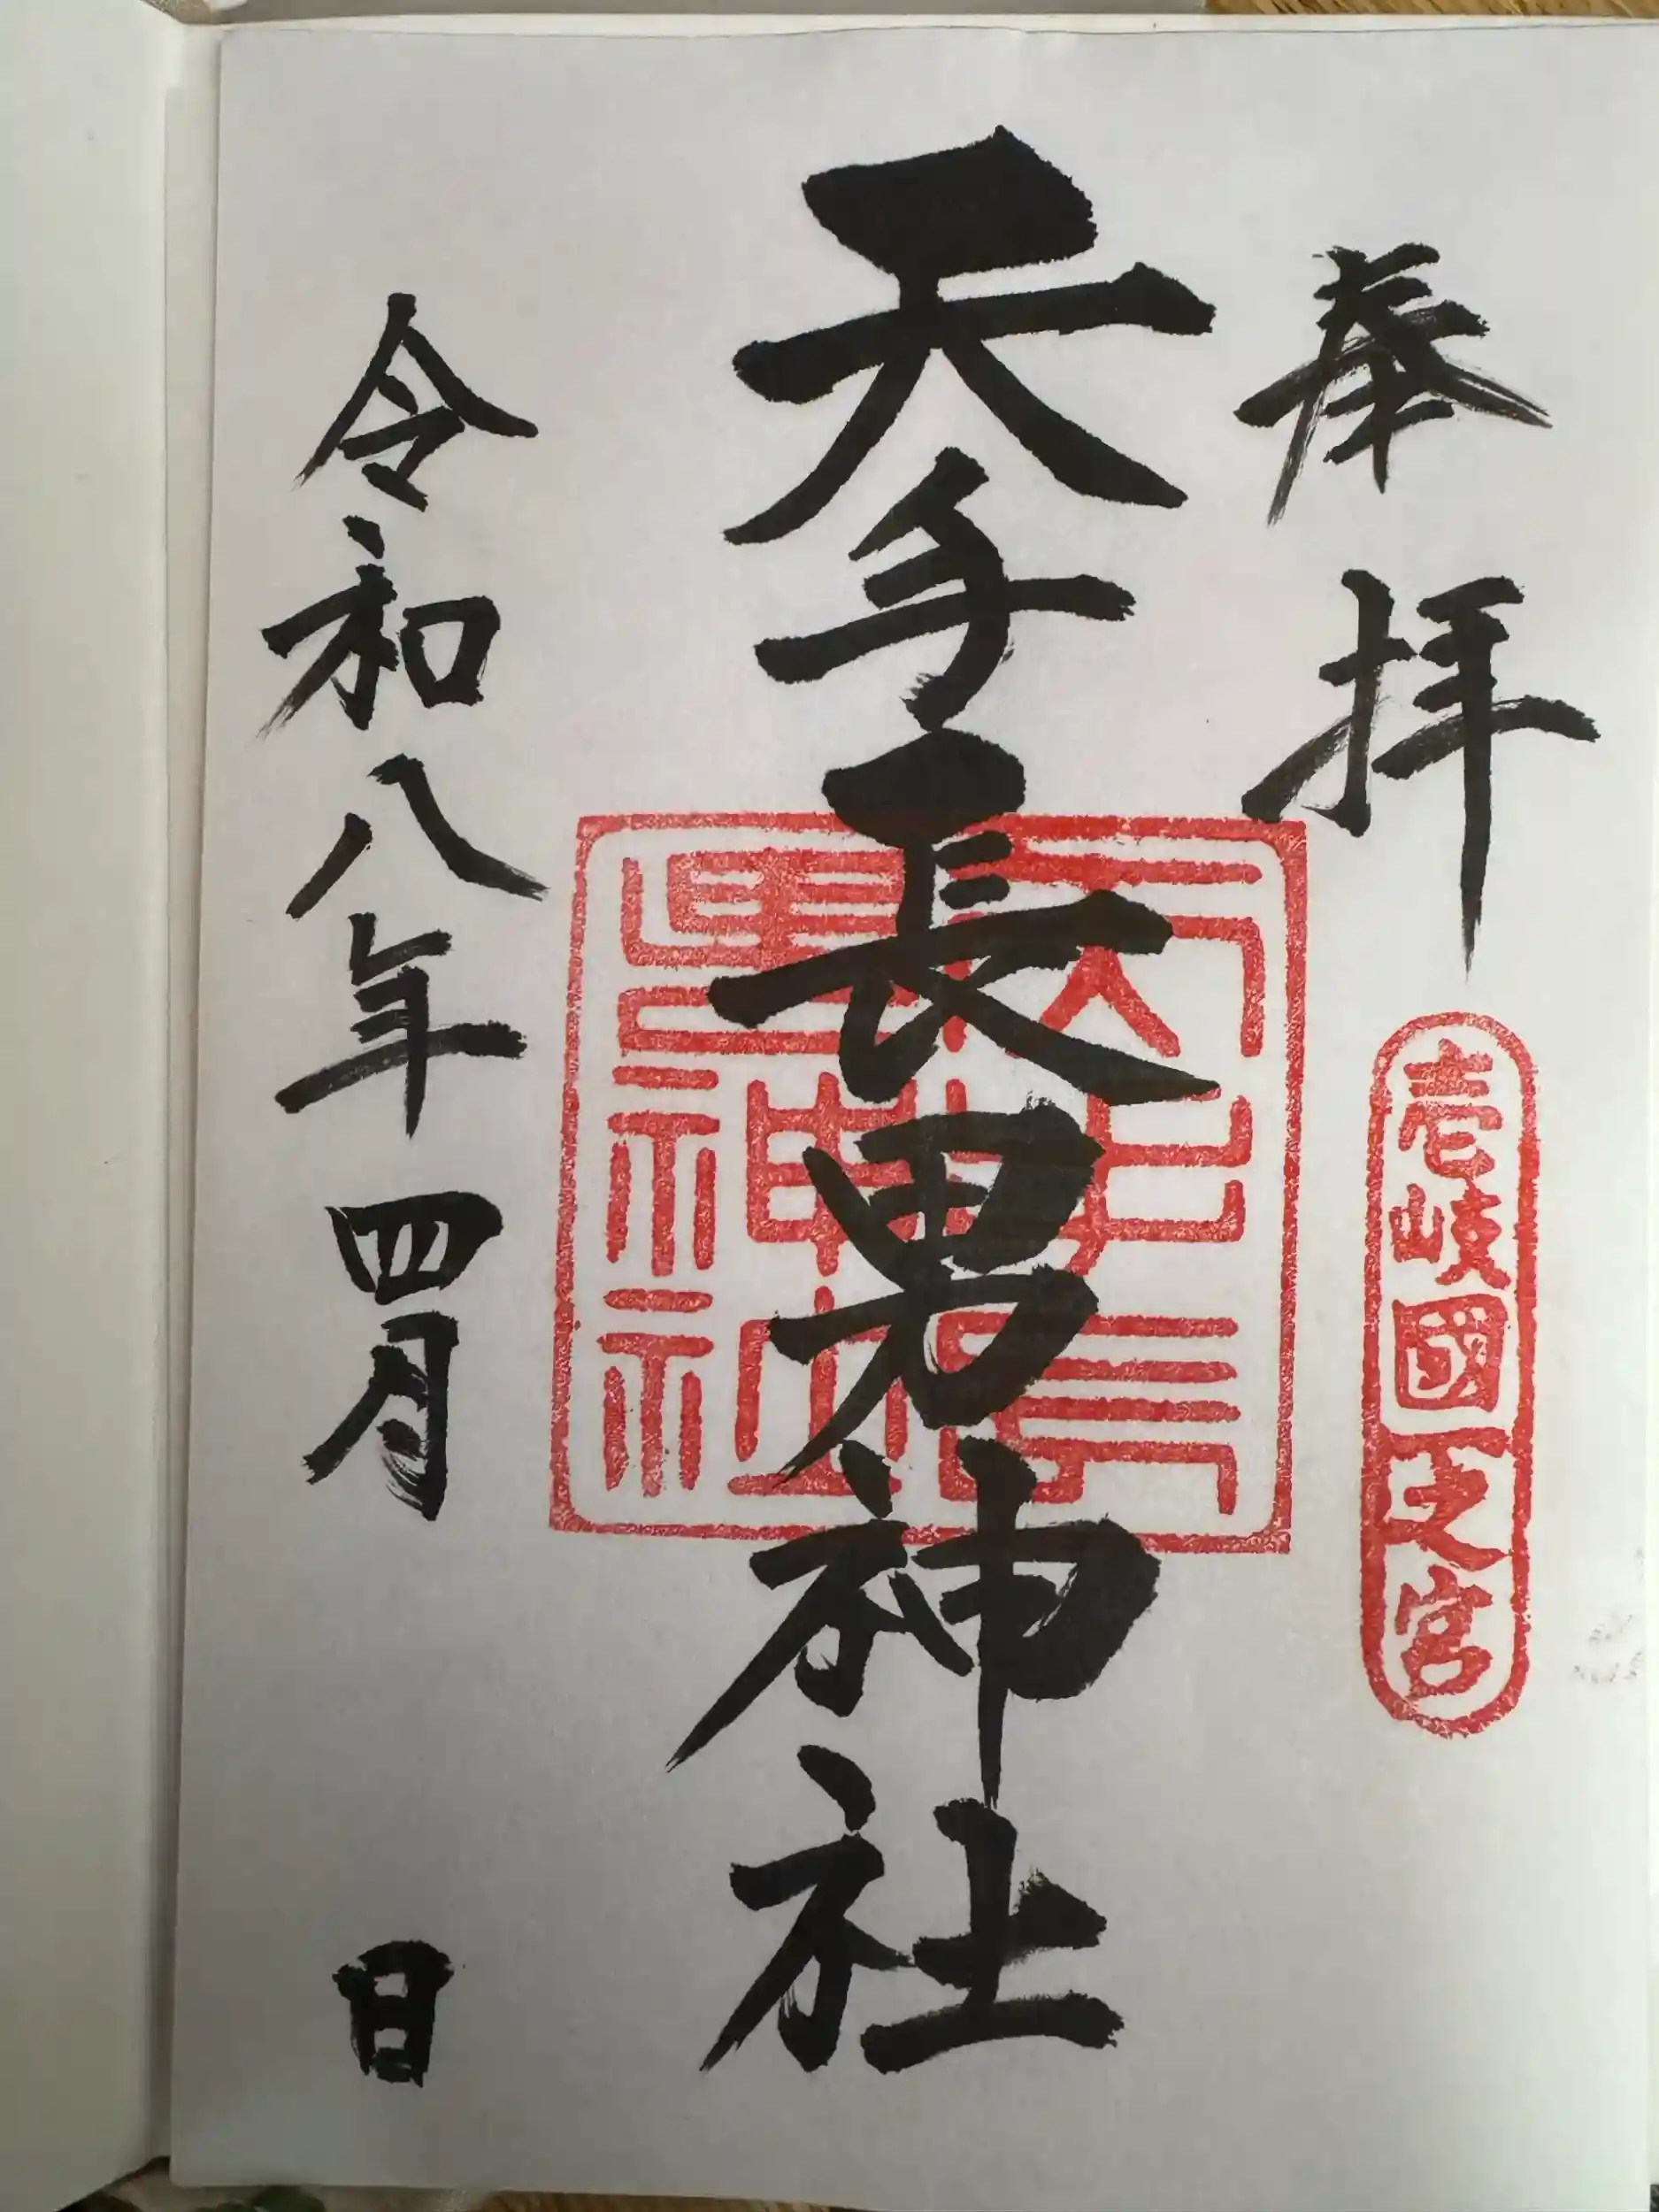 奉拝
壱岐國一之宮
天手長男神社
天手長男神社
令和八年四月 日